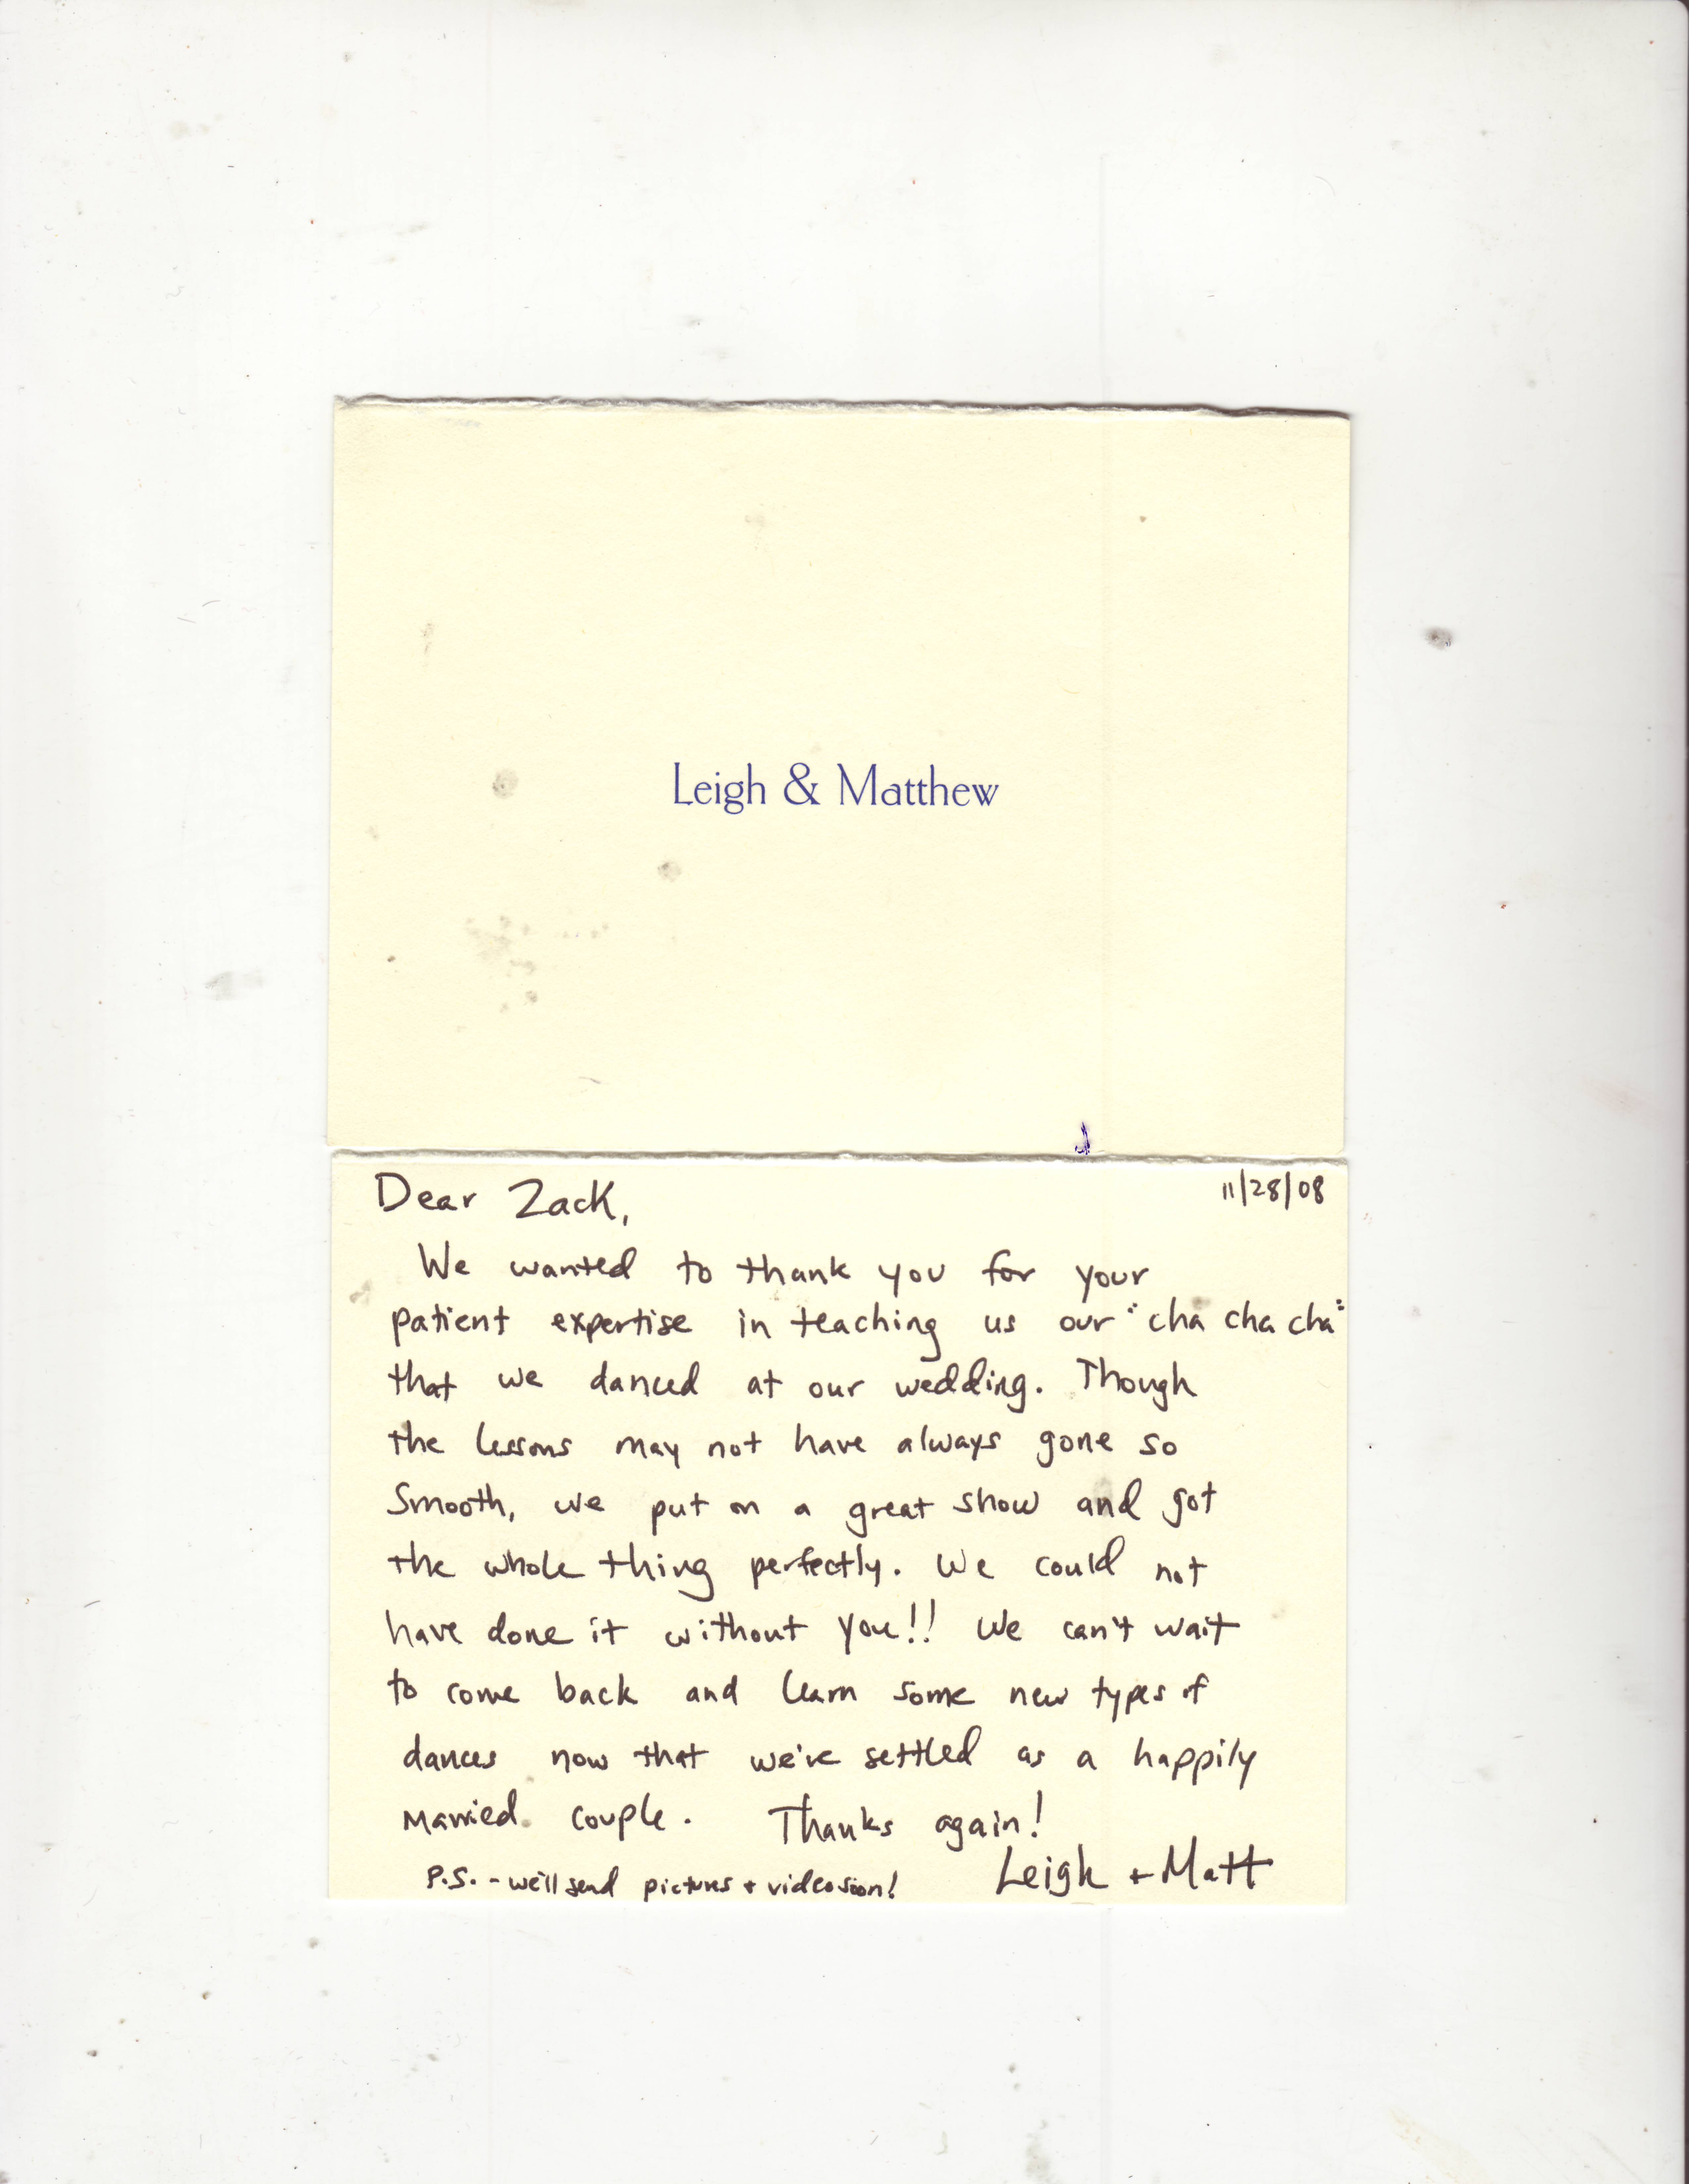 Leigh & Matthew
Dear Zack,
11/28/08
We wanted to thank you for your
patient expertise in teaching us our "cha cha cha"
that we danced at our wedding. Though
the lessons may not have always gone so
smooth, we put on a great show and got
the whole thing perfectly. We could not
have done it without you!! We can't wait
to come back and learn some new types of
dances now that we're settled as a happily
married couple. Thanks again!
Leigh + Matt
P.S. - we'll send pictures + video soon!